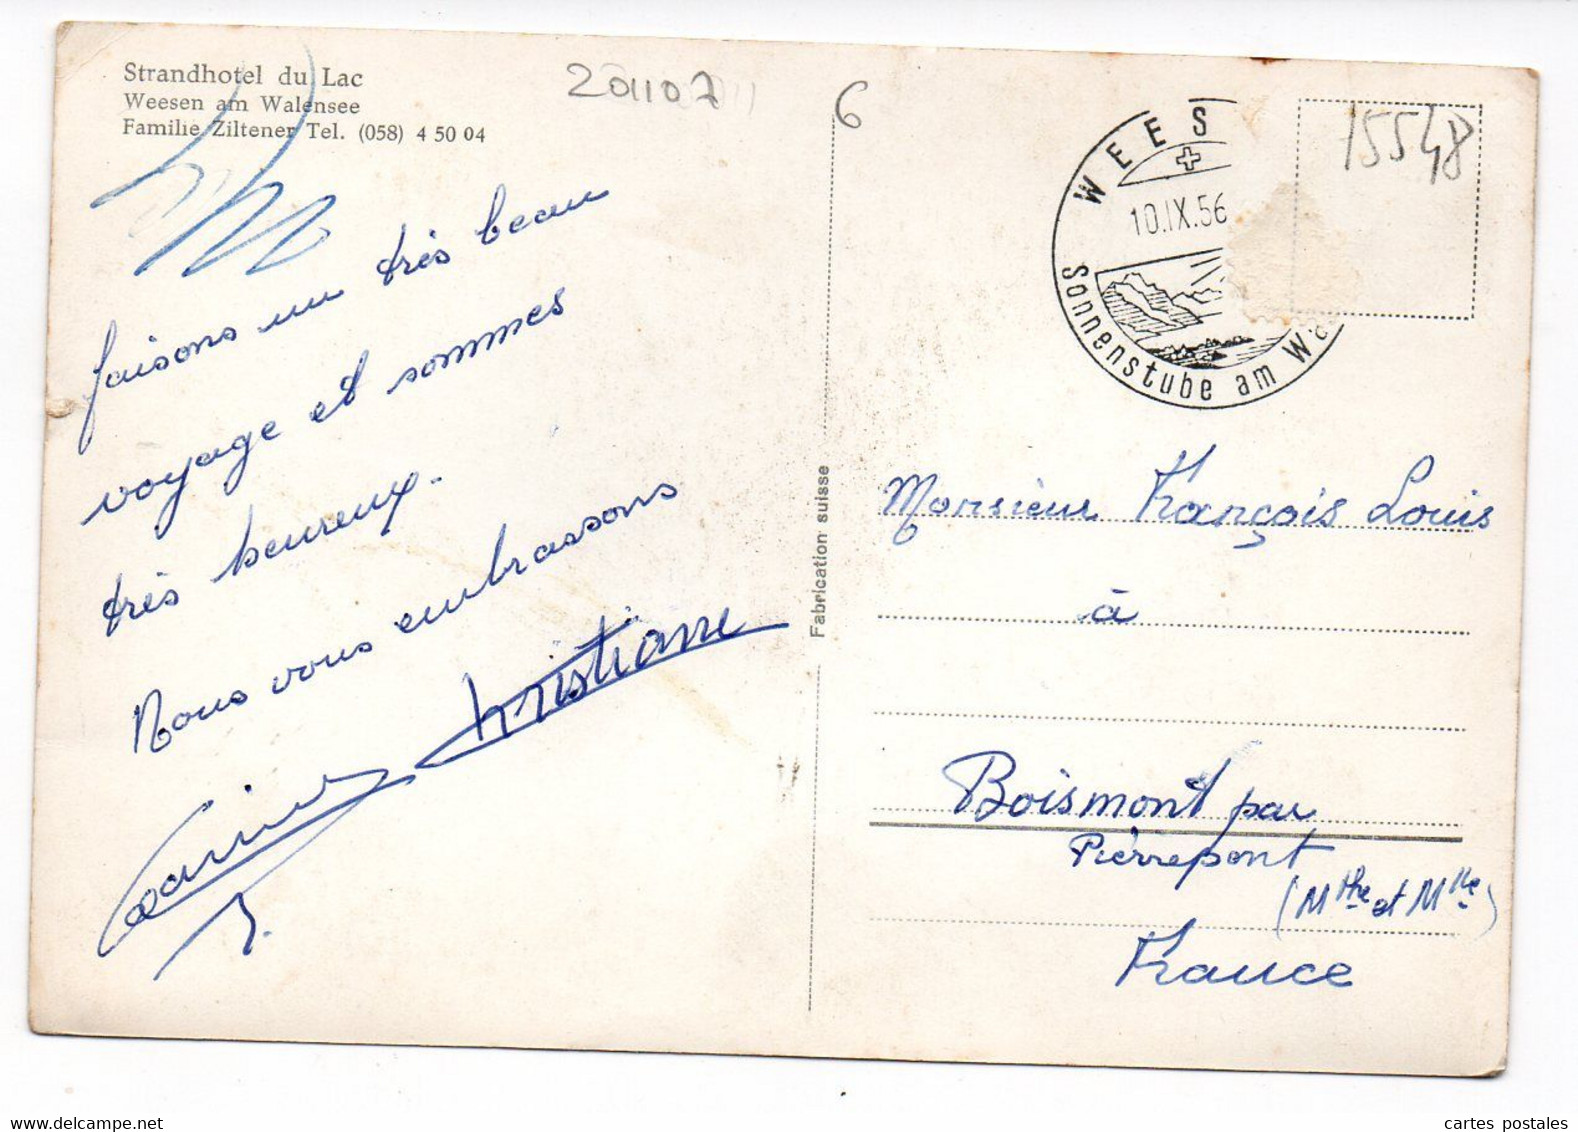 Strandhotel du Lac
Weesen am Walensee
Familie Ziltener Tel. (058) 4 50 04
201107
6
faisons un très beau
voyage et sommes
très heureux.
Nous vous embrassons
Christiane
Fabrication suisse
WEES
10.IX.56
Sonnenstube am Wa
15548
Monsieur François Louis
à
Boismont par
Pierrepont
(M the et M lle)
France
www.delcampe.net
cartes postales